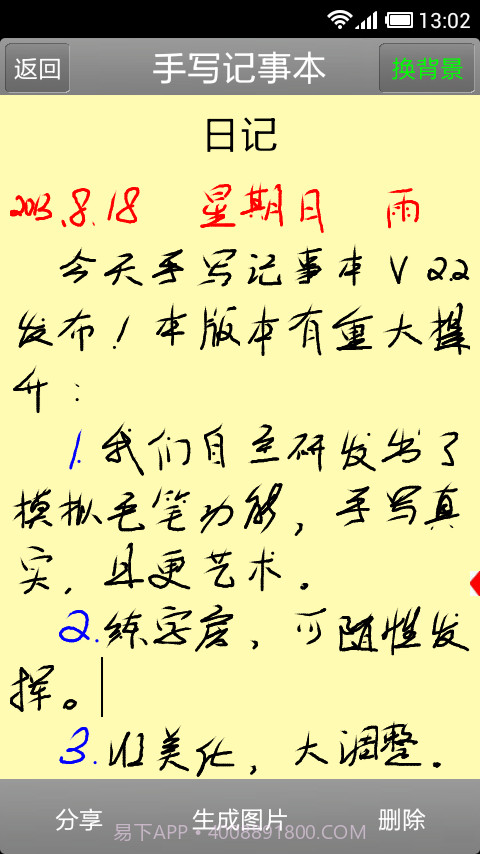 13:02
返回 手写记事本 换背景
日记
2013.8.18 星期日 雨
今天手写记事本V2.2
发布！本版本有重大提
升：
1.我们自主研发出了
模拟毛笔功能，手写真
实，且更艺术。
2.练字房，可随性发
挥。
3.UI美化，大调整。
分享 生成图片 删除
易下APP·4008891800.COM